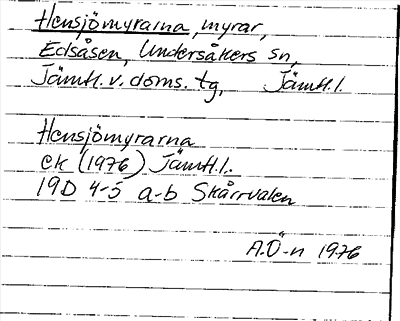 Hensjömyrarna, myrar,
Edsåsen, Undersåkers sn,
Jämtl. v. doms. tg, Jämtl. l.
Hensjömyrarna
ek (1976) Jämtl. l.
19D 4-5 a-b Skårrvalen
A.Ö-n 1976